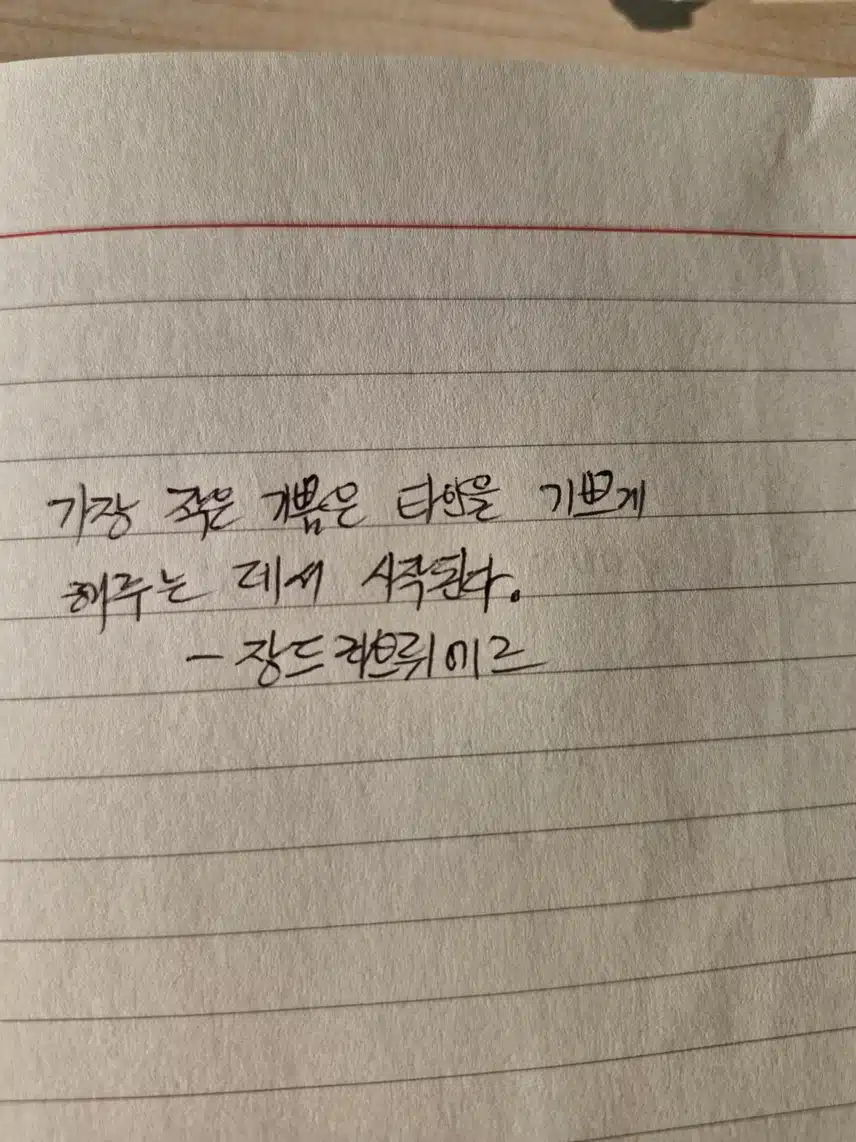 가장 작은 기쁨은 타인을 기쁘게
해주는 데서 시작된다.
- 장드 라브뤼에르